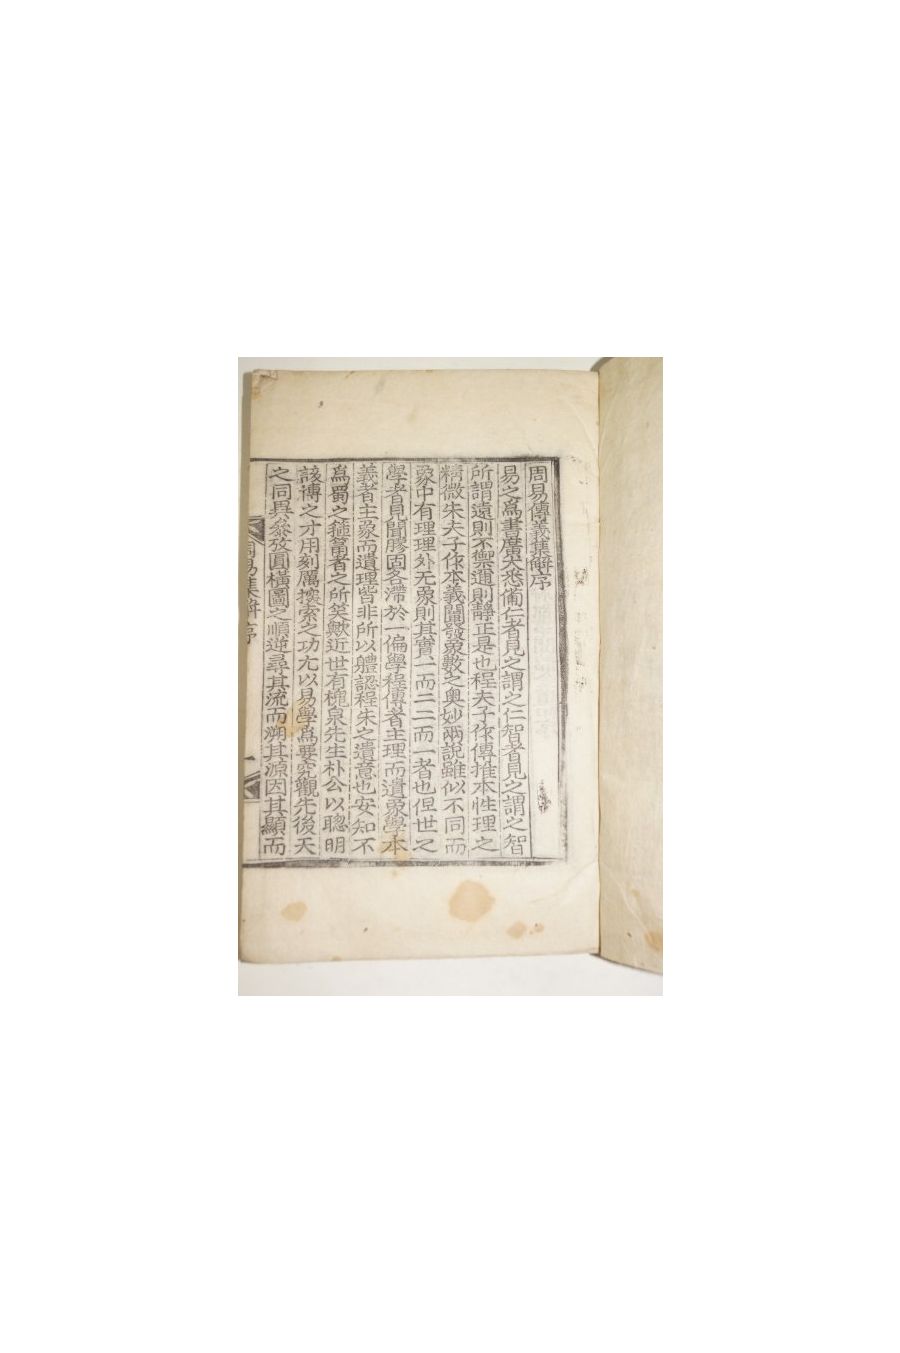 周易傳義集解序
易之爲書廣大悉備仁者見之謂之仁智者見之謂之智
所謂遠則不禦邇則靜正是也程夫子作傳推本性理之
精微朱夫子作本義闡發象數之奧妙兩說雖似不同而
象中有理理外无象則其實一而二二而一者也但世之
學者見聞膠固各滯於一偏學程傳者主理而遺象學本
義者主象而遺理皆非所以軆認程朱之遺意也安知不
爲蜀之箍篅者之所笑歟近世有槐泉先生朴公以聰明
該博之才用刻厲摸索之功尤以易學爲要究觀先後天
之同異叅攷圓橫圖之順逆尋其流而溯其源因其顯而
周易集解 序
一